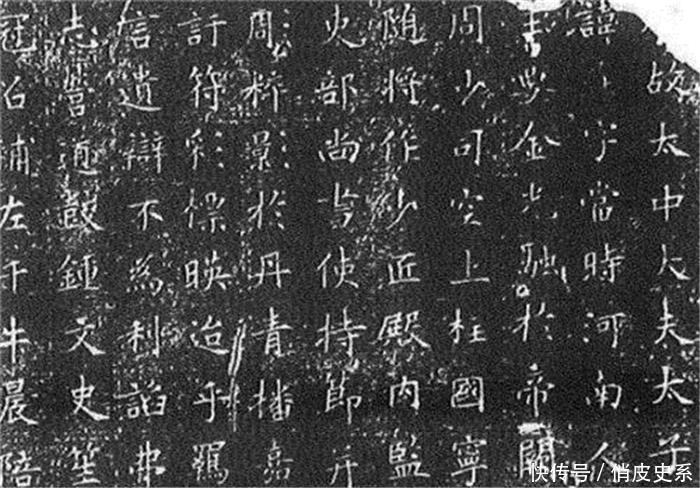 故太中大夫太子
諱字當時河南人
金光融於帝闕
周少司空上柱國寧
随將作少匠殿內監
吏部尚書使持節并
周粹景於丹青播嘉
訏符彩標暎迨乎羈
言遺辯不為利諂弗
志嘗遊鼓鍾文史笙
冠召補左千牛晨陪
快传号/俏皮史系